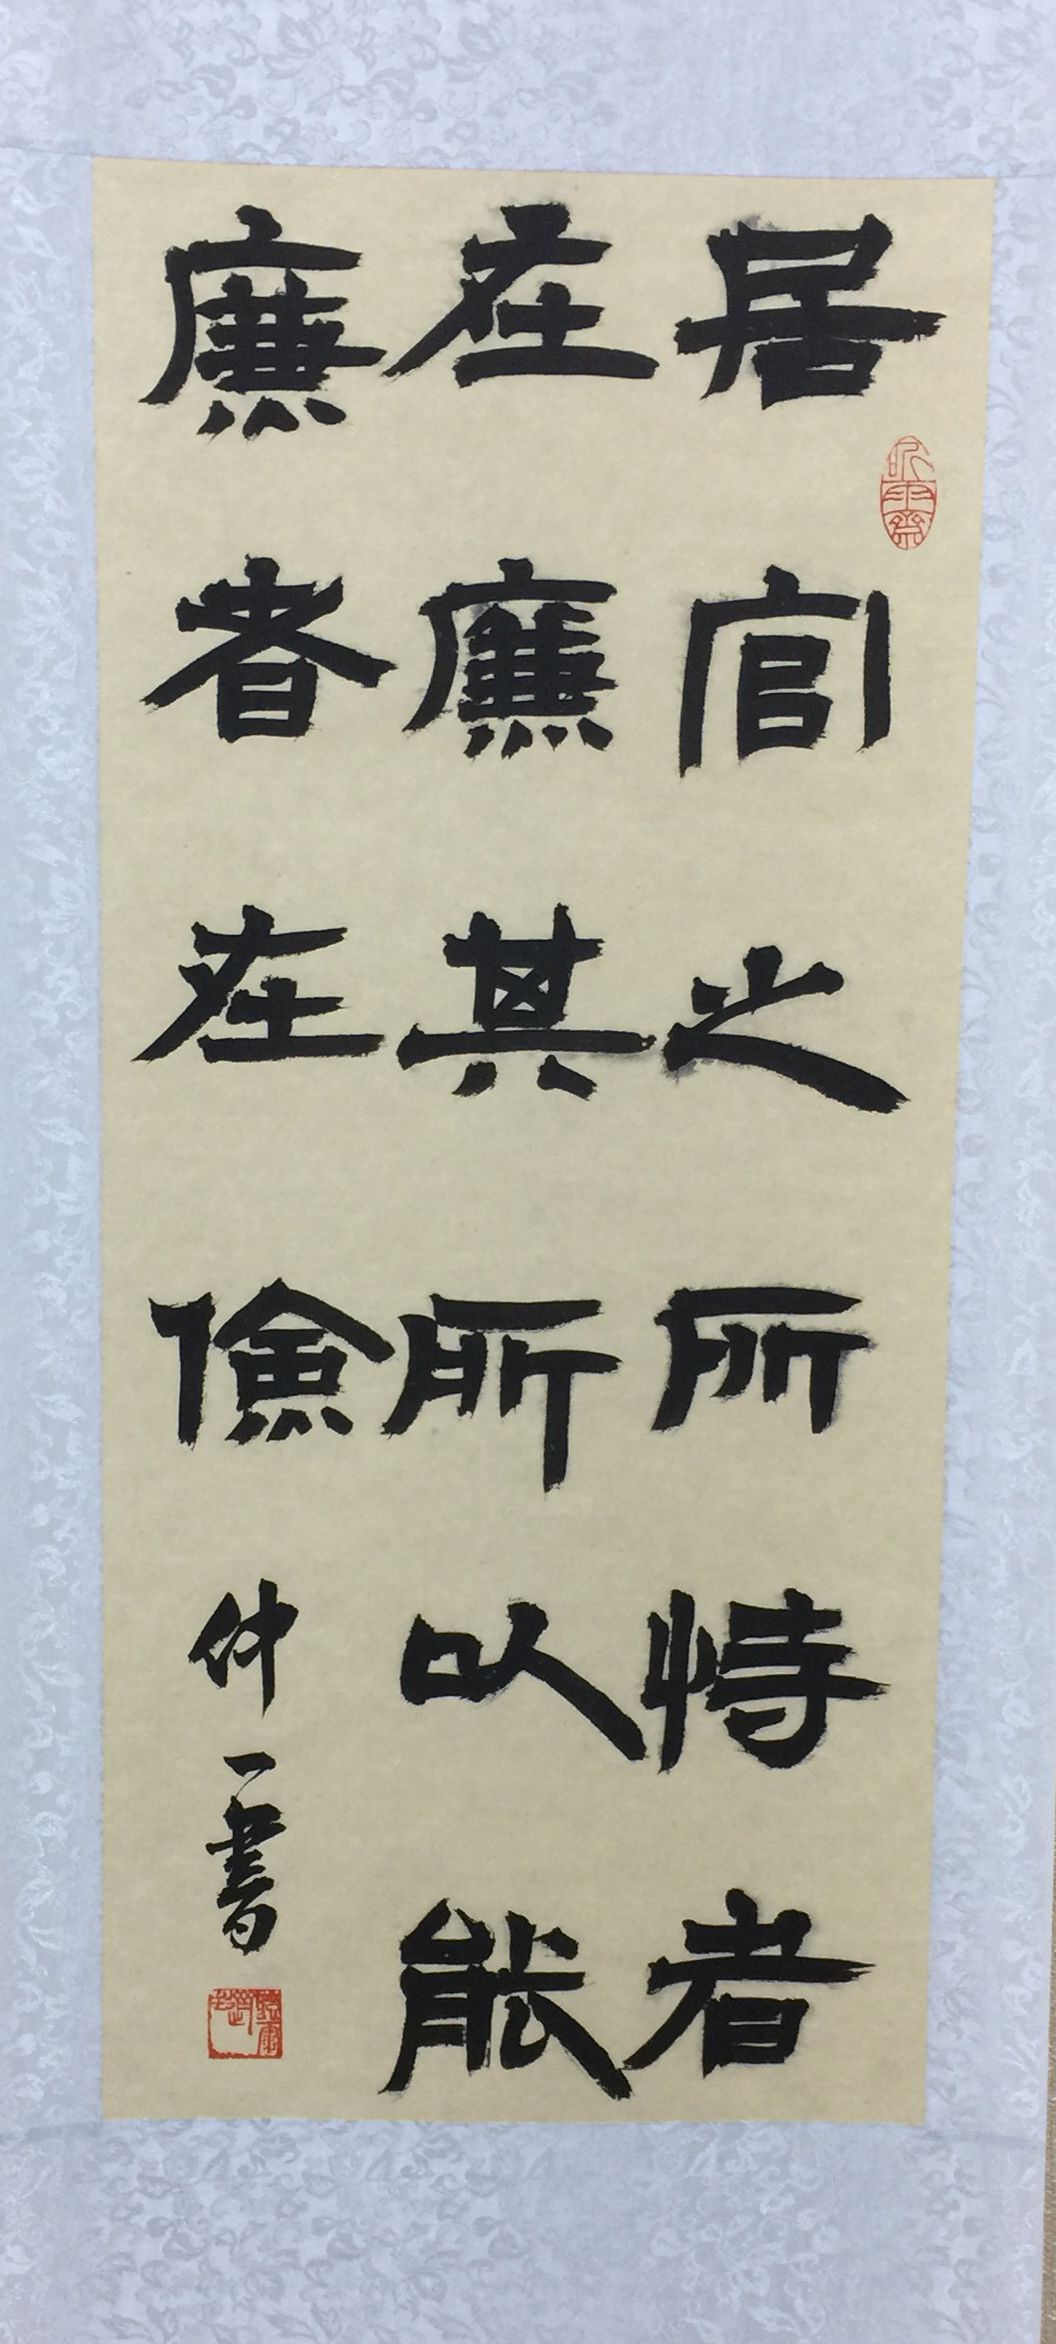 居官之所恃者
在廉其所以能
廉者在儉
仲一書